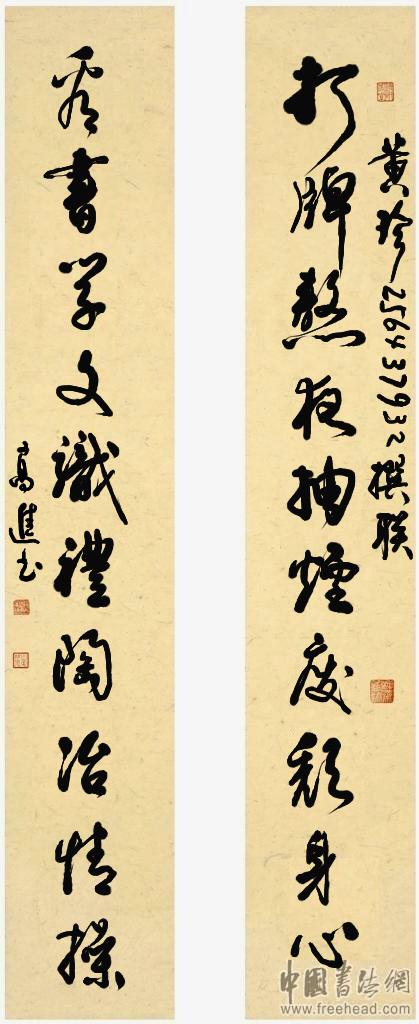 黄珍256437932撰联
打牌熬夜抽煙废颓身心
看書学文識禮陶冶情操
高進书
中国書法網
www.freehead.com